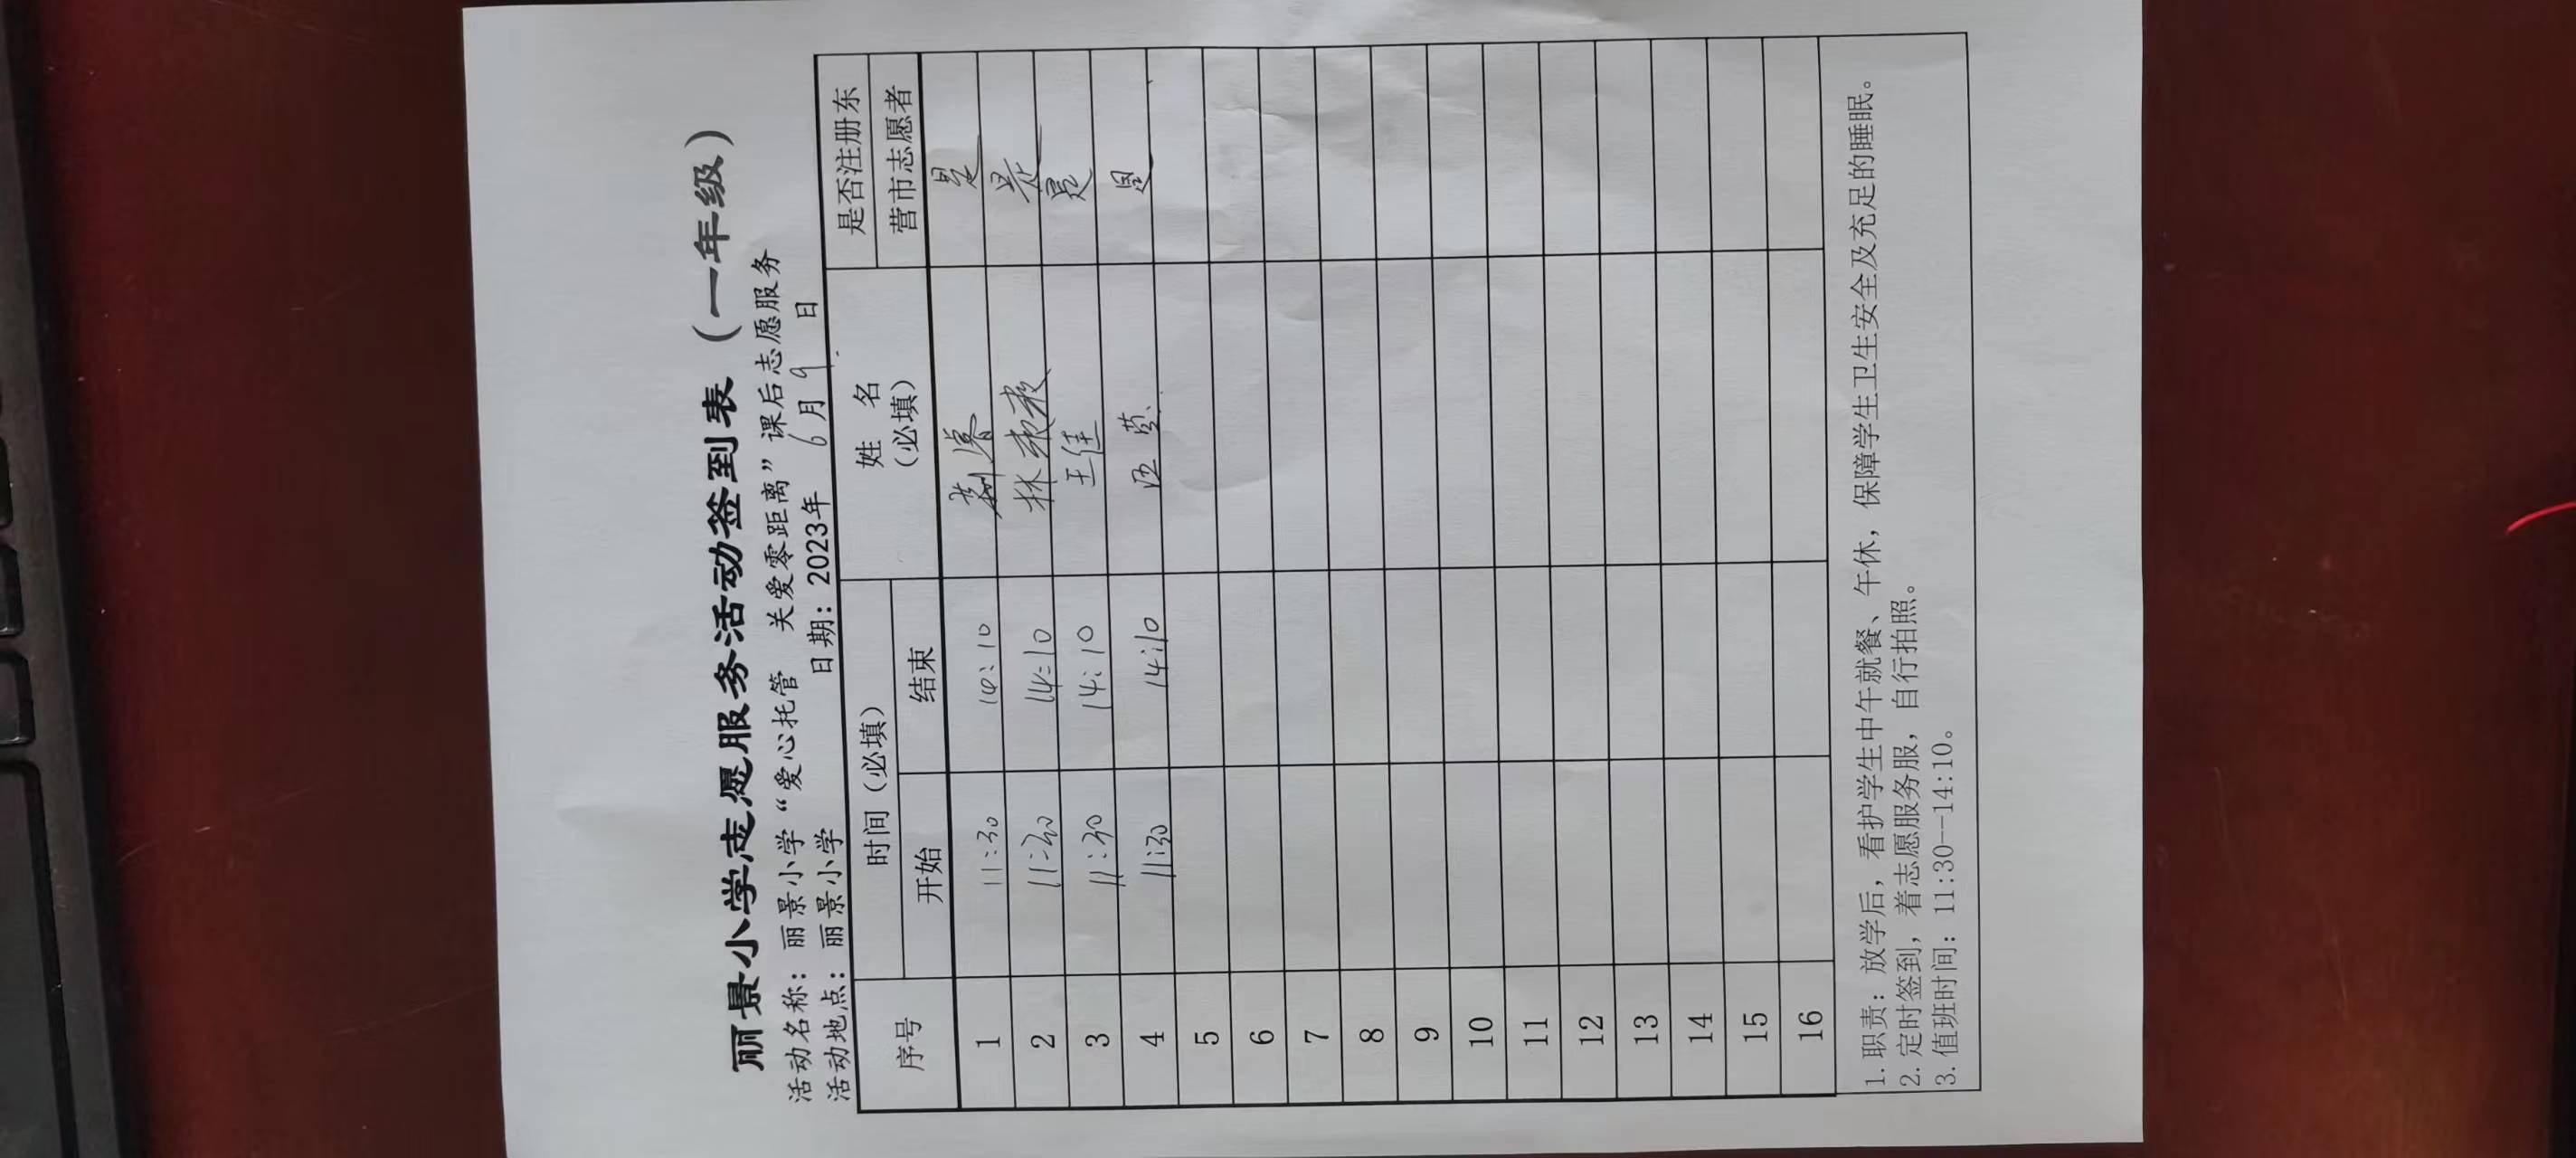 丽景小学志愿服务活动签到表（一年级）
活动名称：丽景小学“爱心托管 关爱零距离”课后志愿服务
活动地点：丽景小学 日期：2023年 6月 9 日
序号 时间（必填） 姓 名（必填） 是否注册东营市志愿者
开始 结束
1 11:30 14:10 是
2 11:30 14:10 林 是
3 11:30 14:10 王佳 是
4 11:30 14:10
5
6
7
8
9
10
11
12
13
14
15
16
1.职责：放学后，看护学生中午就餐、午休，保障学生卫生安全及充足的睡眠。
2.定时签到，着志愿服务服，自行拍照。
3.值班时间：11:30--14:10。